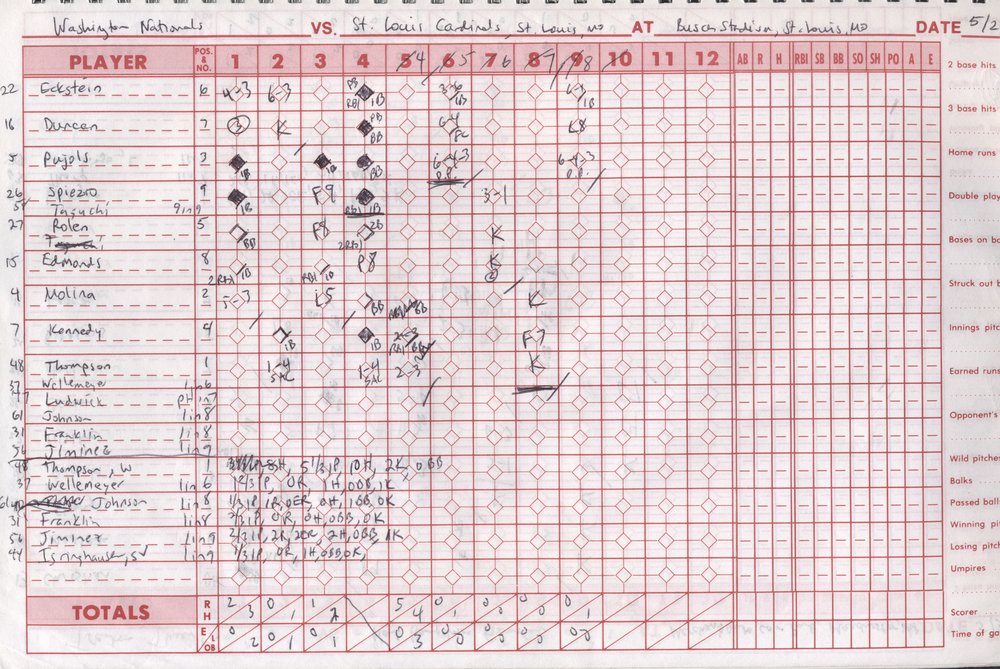 Washington Nationals VS. St. Louis Cardinals, St. Louis, MO AT Busch Stadium, St. Louis, MO DATE 5/2
PLAYER POS. & NO. 1 2 3 4 5 4 6 5 7 6 8 7 9 8 10 11 12 AB R H RBI SB BB SO SH PO A E
2 base hits
22 Eckstein 6 4-3 6-3 PB RBI 1B 3-6 1B 6-3 1B
3 base hits
16 Duncan 7 3 K PB BB 6-4 FC K8
Home runs
5 Pujols 3 1B 1B BB 6-4-3 D.P. 6-4-3 D.P.
26 Spiezio 9 1B F9 RBI 1B 3-1
Double play
Taguchi 9 in 9
27 Rolen 5 BB F8 2B 2RBI K
Bases on ba
15 Edmonds 8 2RBI 1B RBI 1B P8 K
Struck out b
4 Molina 2 5-3 L5 BB BB K
Innings pitc
7 Kennedy 4 1B 1B 2-3 RBI F7
48 Thompson 1 1-4 SAC 1-4 SAC 2-3 K
Earned runs
37 Wellemeyer 1 in 6
Ludwick PH in 7
61 Johnson 1 in 8
Opponent's
31 Franklin 1 in 8
56 Jiminez 1 in 9
Wild pitches
48 Thompson, W 1 8H, 5 1/3 IP, 10H, 2K, 0BB
37 Wellemeyer 1 in 6 1 2/3 IP, 0R, 1H, 0BB, 1K
Balks
61 Johnson 1 in 8 1/3 IP, 1R, 0ER, 0H, 1BB, 0K
Passed balls
31 Franklin 1 in 8 2/3 IP, 0R, 0H, 0BB, 0K
Winning pi
56 Jiminez 1 in 9 2/3 IP, 2R, 2ER, 2H, 0BB, 1K
Losing pitc
44 Isringhausen, SV 1 in 9 1/3 IP, 0R, 1H, 0BB, 0K,
Umpires
TOTALS R H 2 3 0 1 1 2 5 4 0 1 0 0 0 0 0 1
Scorer
E LOB 0 2 0 1 0 1 0 3 0 0 0 0 0 0 0 0
Time of ga